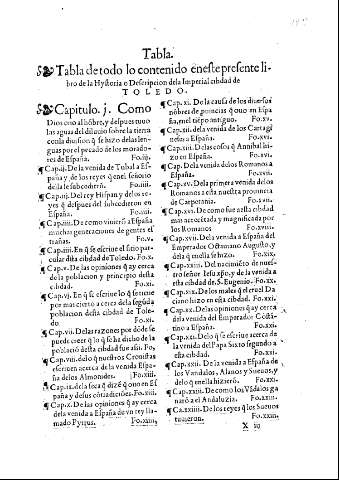 Tabla.
Tabla de todo lo contenido eneste presente li-
bro de la Hystoria o Descripcion dela Imperial cibdad de
TOLEDO.
Capitulo. j. Como
Dios crio al hõbre, y despues truxo
las aguas del diluuio sobre la tierra
con la diuision q̃ se hizo delas len-
guas por el pecado de los morado-
res de España. Fo.iij.
¶ Cap.ij. De la venida de Tubal a Es-
paña y de los reyes q̃ enel señorio
della le subcedierõ. Fo.iiij.
¶ Cap.iij. Del rey Hispan y de los re-
yes q̃ despues del subcedieron en
España. Fo.iiij.
¶ Cap.iiij. De como vinierõ a España
muchas generaciones de gentes es
trañas. Fo.v.
¶ Cap.iiij. En q̃ se escriue el sitio par-
cular dsta cibdad de Toledo. Fo.x.
¶ Cap.v. De las opiniones q̃ ay cerca
de la poblacion y principio desta
cibdad. Fo.xi.
¶ Cap.vj. En q̃ se escriue lo q̃ se tiene
por mas cierto a cerca dela segũda
poblacion desta cibdad de Tole-
do. Fo.xi.
¶ Cap.vij. Delas razones por dõde se
puede creer q̃ lo q̃ se ha dicho de la
poblaciõ desta cibdad fue assi. Fo.
¶ Cap.viij. delo q̃ nuestros Cronistas
escriuen acerca de la venida Espa-
ña delos Almonides. Fo.xiij.
¶ Cap.ix. dela seca q̃ dizẽ q̃ ouo en Es
paña y de sus cõtradiciões. Fo.xiij.
¶ Cap.x. De las opiniones q̃ ay cerca
dela venida a España de vn rey lla-
mado Pyrrus. Fo.xiiij.
¶ Cap. xi. De la causa de los diuersos
nõbres de prouincias q̃ ouo en Espa
ña, en el tiẽpo antiguo. Fo.xv.
¶ Cap.xij. dela venida de los Cartagi
neses a España. Fo.xv.
¶ Cap.xiij. Delas cosas q̃ Annibal hi-
zo en España. Fo.xv.
Cap. Dela venida delos Romanos a
España. Fo.xv.
¶ Cap.xv. Dela primera venida delos
Romanos a esta nuestra prouincia
de Carpetania. Fo.xv.
¶ Cap.xvi. De como fue esta cibdad
mas acrecẽtada y magnificada por
los Romanos Fo.xvij.
¶ Cap.xvij. Dela venida a España del
Emperador Octauiano Augusto, y
dela q̃ mesma se hizo. Fo.xix.
¶ Cap.xviij. Del nacimiẽto de nues-
tro señor Iesu xp̃o, y de la venida a
esta cibdad de S. Eugenio. Fo.xx.
¶ Cap.xix. De los males q̃ el cruel Da
ciano hizo en esta cibdad. Fo.xxi.
¶ Cap.xx. Delas opiniones q̃ ay cerca
dela venida del Emperador Cõstã-
tino a España. Fo.xxi.
¶ Cap.xxi. Delo q̃ se escriue acerca de
la venida del Papa Sixto segundo a
esta cibdad. Fo.xxi.
¶ Cap.xxij. De la venida a España de
los Vandalos, Alanos y Sueuos, y
delo q̃ enella hizierõ. Fo.xxi.
¶ Cap.xxiij. De como los Vãdalos ga
narõ el Andaluzia. Fo.xxij.
¶ Ca.xxiiij. De los reyes q̃ los Sueuos
tuuieron. Fo.xxiij.
X iij